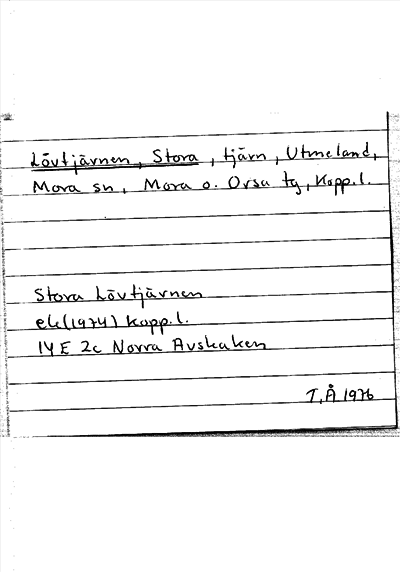 Lövtjärnen, Stora, tjärn, Utmeland,
Mora sn, Mora o. Orsa tg, Kopp.l.
Stora Lövtjärnen
ek(1974) Kopp.l.
14 E 2c Norra Avskaken
T.Å 1976